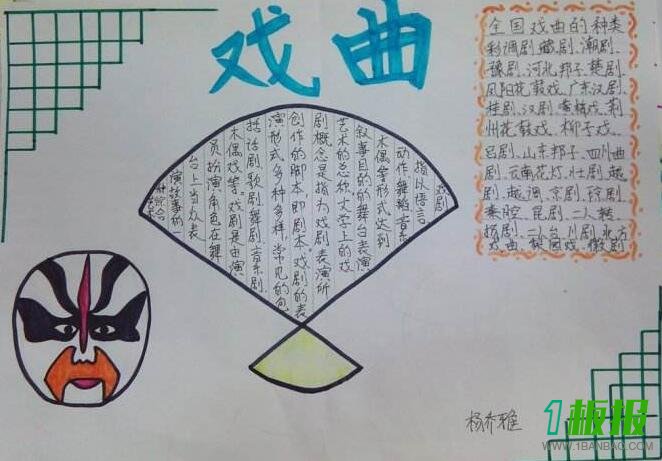 戏曲
戏剧
指以语言
动作舞蹈音乐
木偶等形式达到
叙事目的的舞台表演
艺术的总称文学上的戏
剧概念是指为戏剧表演所
创作的脚本即剧本戏剧的表
演形式多种多样常见的包
括话剧歌剧舞剧音乐剧
木偶戏等戏剧是由演
员扮演角色在舞
台上当众表
演故事的
一种综合
全国戏曲的种类
彩调剧、藏剧、潮剧、
豫剧、河北邦子、楚剧、
凤阳花鼓戏、广东汉剧、
桂剧、汉剧、黄梅戏、荆
州花鼓戏、柳子戏、
吕剧、山东邦子、四川曲
剧、云南花灯、壮剧、越
剧、越调、京剧、评剧、
秦腔、昆剧、二人转、
扬剧、二人台、川剧、北方
戏曲、梨园戏、徽剧
杨乔雅
1板报
WWW.1BANBAO.COM